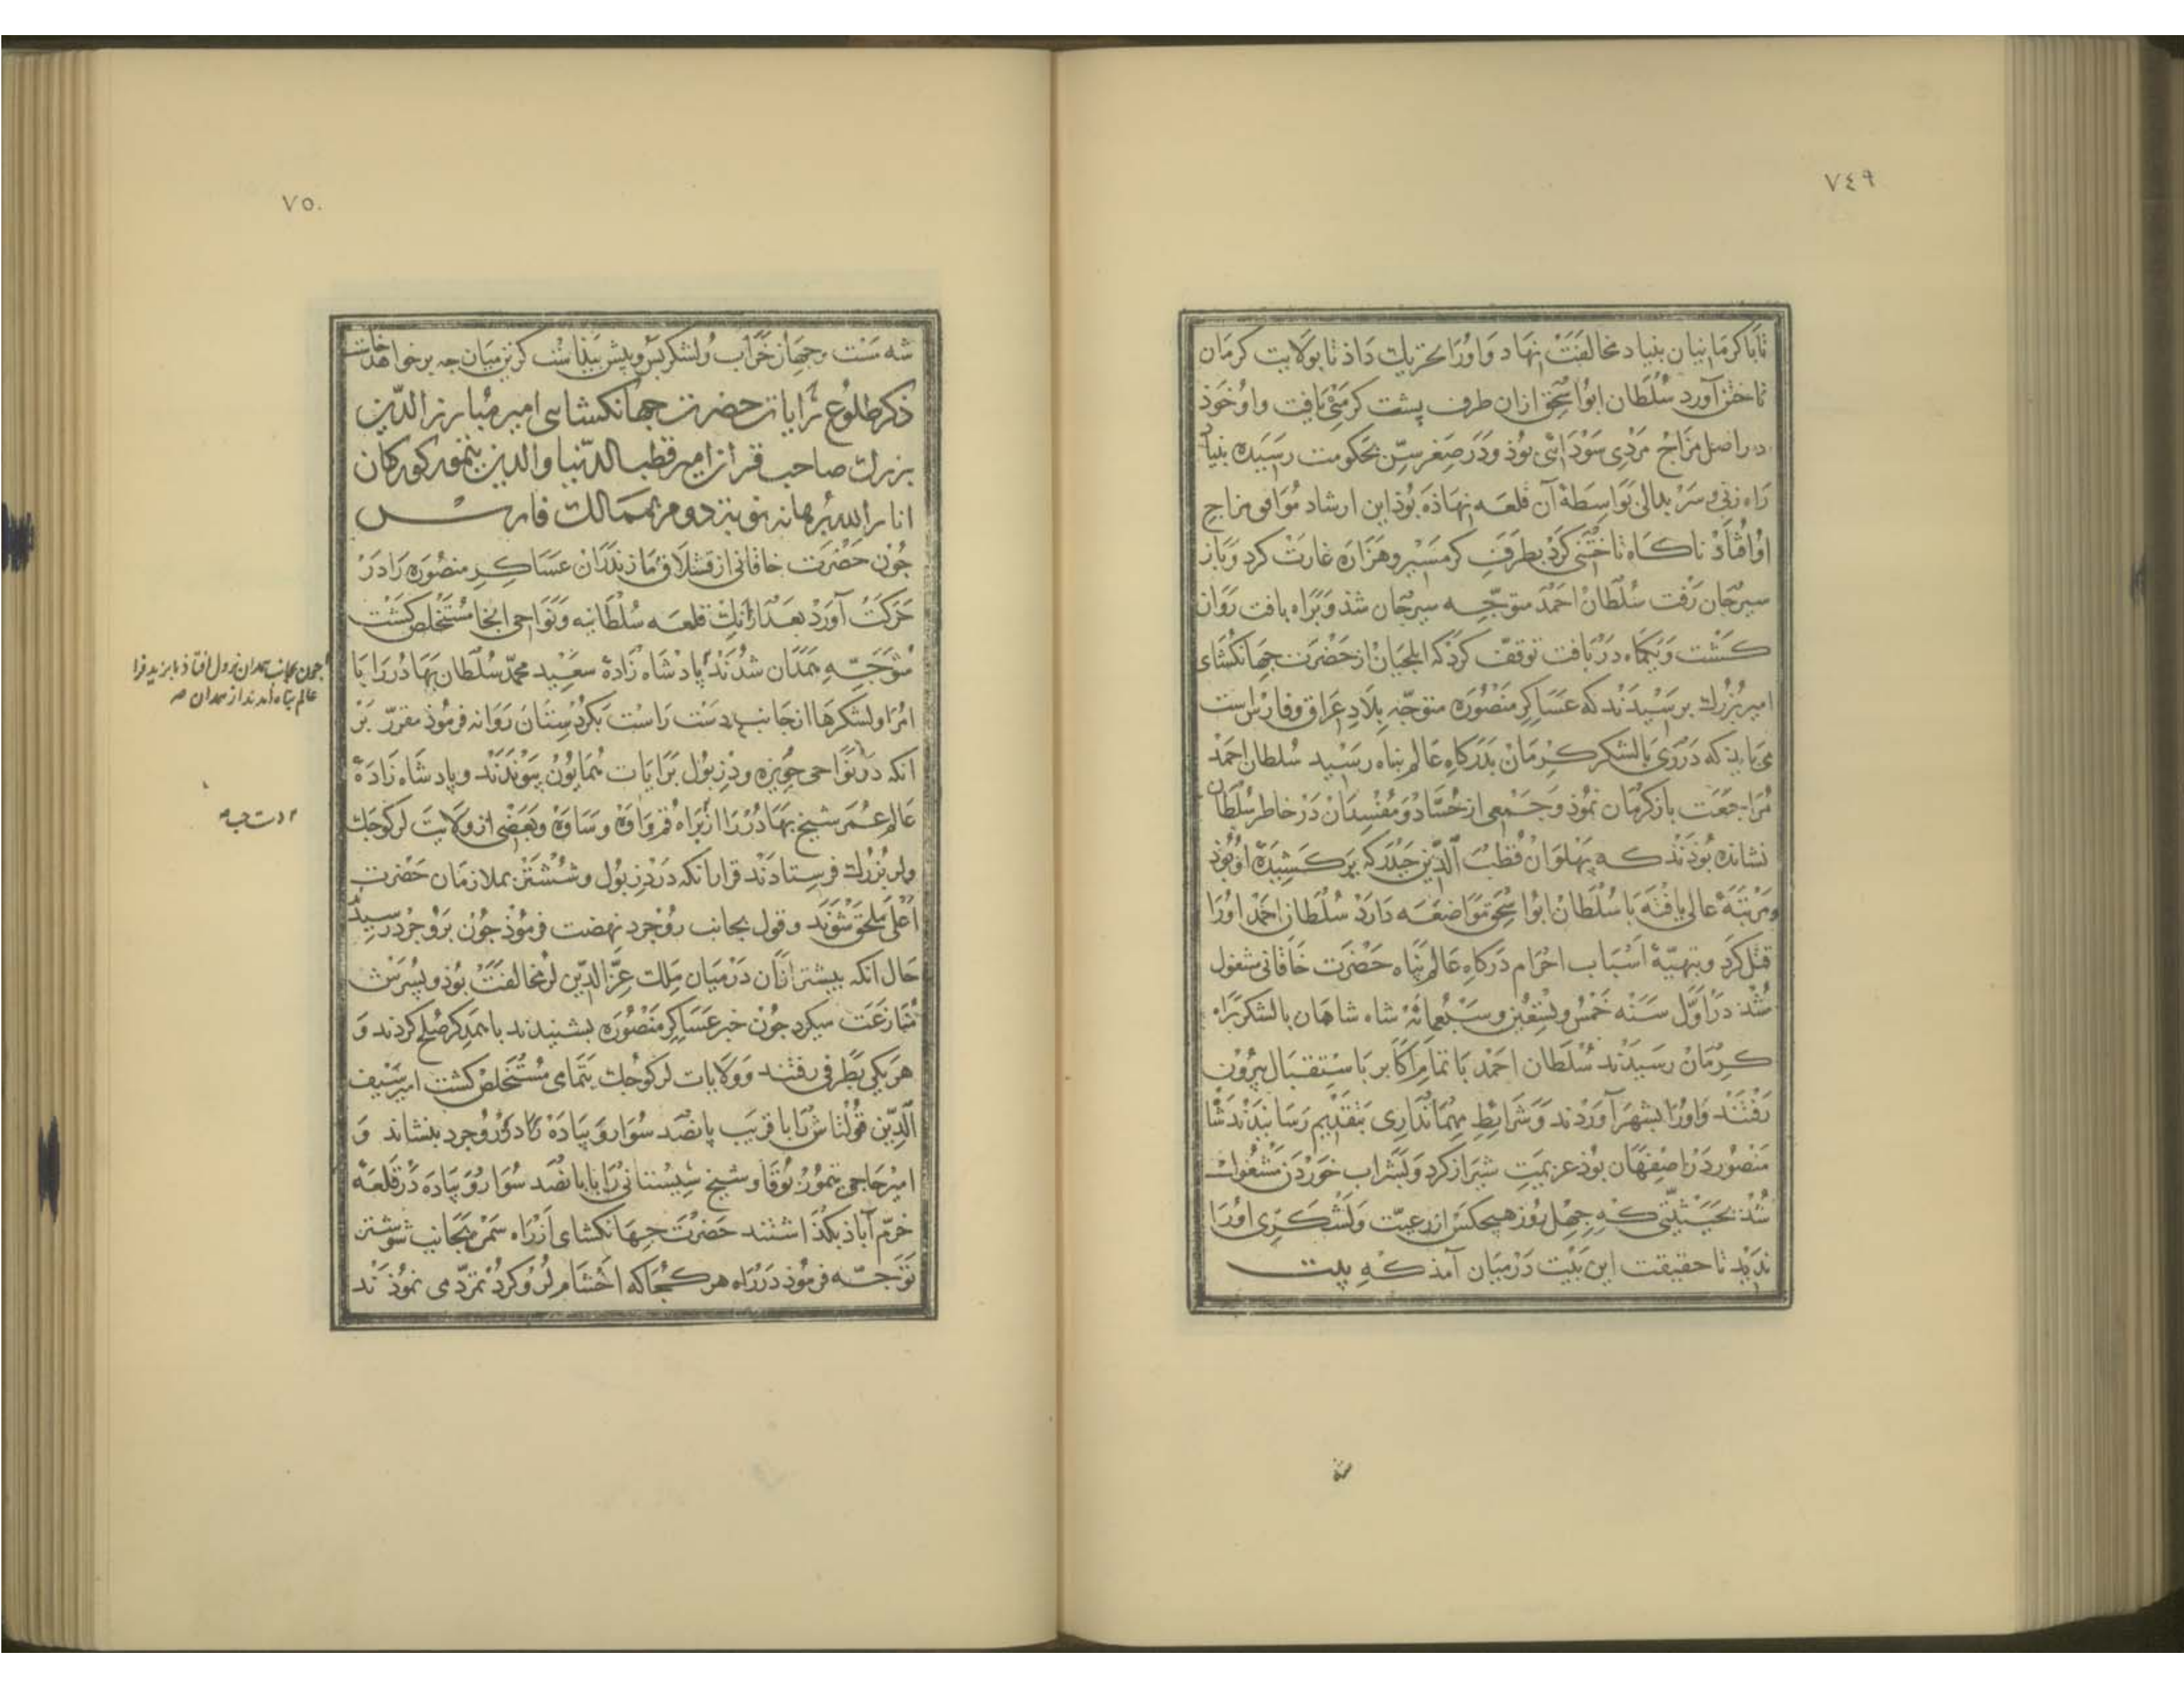 ٧٤٩
تا با کرمانیان بنیاد مخالفت نهاد و اورا تحریك داذ تا بولایت کرمان
تاختن آورد سلطان ابو اسحق ازان طرف پشت کرمئ یافت و او خوذ
در اصل مزاج مردی سودائی بوذ و در صغر سن بحکومت رسیده بنیاد
راه زنی و سر بدالی بواسطهٔ آن قلعه نهاذه بوذ این ارشاد موافق مزاج
او افتاذ ناکاه تاختنی کرد بطرف کرمسیر و هزاره غارت کرد و باز
سیرجان رفت سلطان احمد متوجه سیرجان شذ و براه بافت روان
کشت و یکماه در بافت توقف کرد که ایلجیان از حضرت جهانکشای
امیر بزرك برسیدند که عساکر منصوره متوجه بلاد عراق و فارس است
می باید که در ری با لشکر کرمان بدرکاه عالم بناه رسید سلطان احمد
مراجعت باز کرمان نموذ و جمعی از حساد و مفسدان در خاطر سلطان
نشانده بوذند که پهلوان قطب الدین حیدر که برکشیدهٔ او بوذ
و مرتبهٔ عالی یافته با سلطان ابو اسحق مواضعه دارد سلطان احمد اورا
قتل کرد و بتهیهٔ اسباب احرام درکاه عالم پناه حضرت خاقانی مشغول
شذ در اول سنه خمس و تسعین و سبعمائه شاه شاهان با لشکر براه
کرمان رسیدند سلطان احمد با تمام اکابر باستقبال بیرون
رفتند و اورا بشهر آوردند و شرایط مهمانداری بتقدیم رسانیدند شاه
منصور در اصفهان بوذ عزیمت شیراز کرد و بشراب خوردن مشغول
شذ بحیثیتی که جهل روز هیجکس از رعیت و لشکری اورا
ندید تا حقیقت این بیت درمیان آمذ که بیت
شه
٧٥٠
شه مست و جهان خراب و لشکر بس و پیش بیذاست کزین میان جه بر خواهد خاست
ذکر طلوع رایات حضرت جهانکشای امیر مبارز الدین
بزرك صاحب قران امیر قطب الدنیا والدین تیمور کورکان
انار الله برهانه نوبت دوم بممالك فارس
جون حضرت خاقانی از قشلاق مازندران عساکر منصوره را در
حرکت آورد بعد ازانك قلعه سلطانیه و نواحی انجا مستخلص کشت
متوجه همدان شدند پادشاه زادهٔ سعید محمد سلطان بهادر را با
امرا و لشکرها از جانب دست راست بکردستان روانه فرموذ مقرر بر
انکه در نواحی حویزه و دزبول برایات همایون پیوندند و پادشاه زادهٔ
عالم عمر شیخ بهادر را از براه قم و اوه و ساوه و بعضی از ولایت لر کوجك
و لر بزرك فرستادند قرار انکه در دزبول و ششتر بملازمان حضرت
اعلی ملحق شوند و قول بجانب روجرد نهضت فرموذ جون بروجرد رسید
حال انکه بیشتر ازان درمیان ملك عز الدین لر مخالفت بوذ و پسرش
منازعت میکرد جون خبر عساکر منصوره بشنیدند با همدکر صلح کردند و
هر یکی بطرفی رفتند و ولایات لر کوجك بتمامی مستخلص کشت امیر سیف
الدین قولتاش را با قریب پانصد سوار و پیاده در وروجرد بنشاند و
امیر حاجی تیمور بوقا و شیخ سیستانی را با پانصد سوار و پیاده در قلعهٔ
خرم آباذ بکذاشتند حضرت جهانکشای از راه سمن بجانب شوشتر
توجه فرموذ در راه هر کجا که احشام لر و کرد تمرد می نموذند
جون بجانب همدان نزول افتاذ بایزید فرا
عالم پناه آمدند از همدان صه